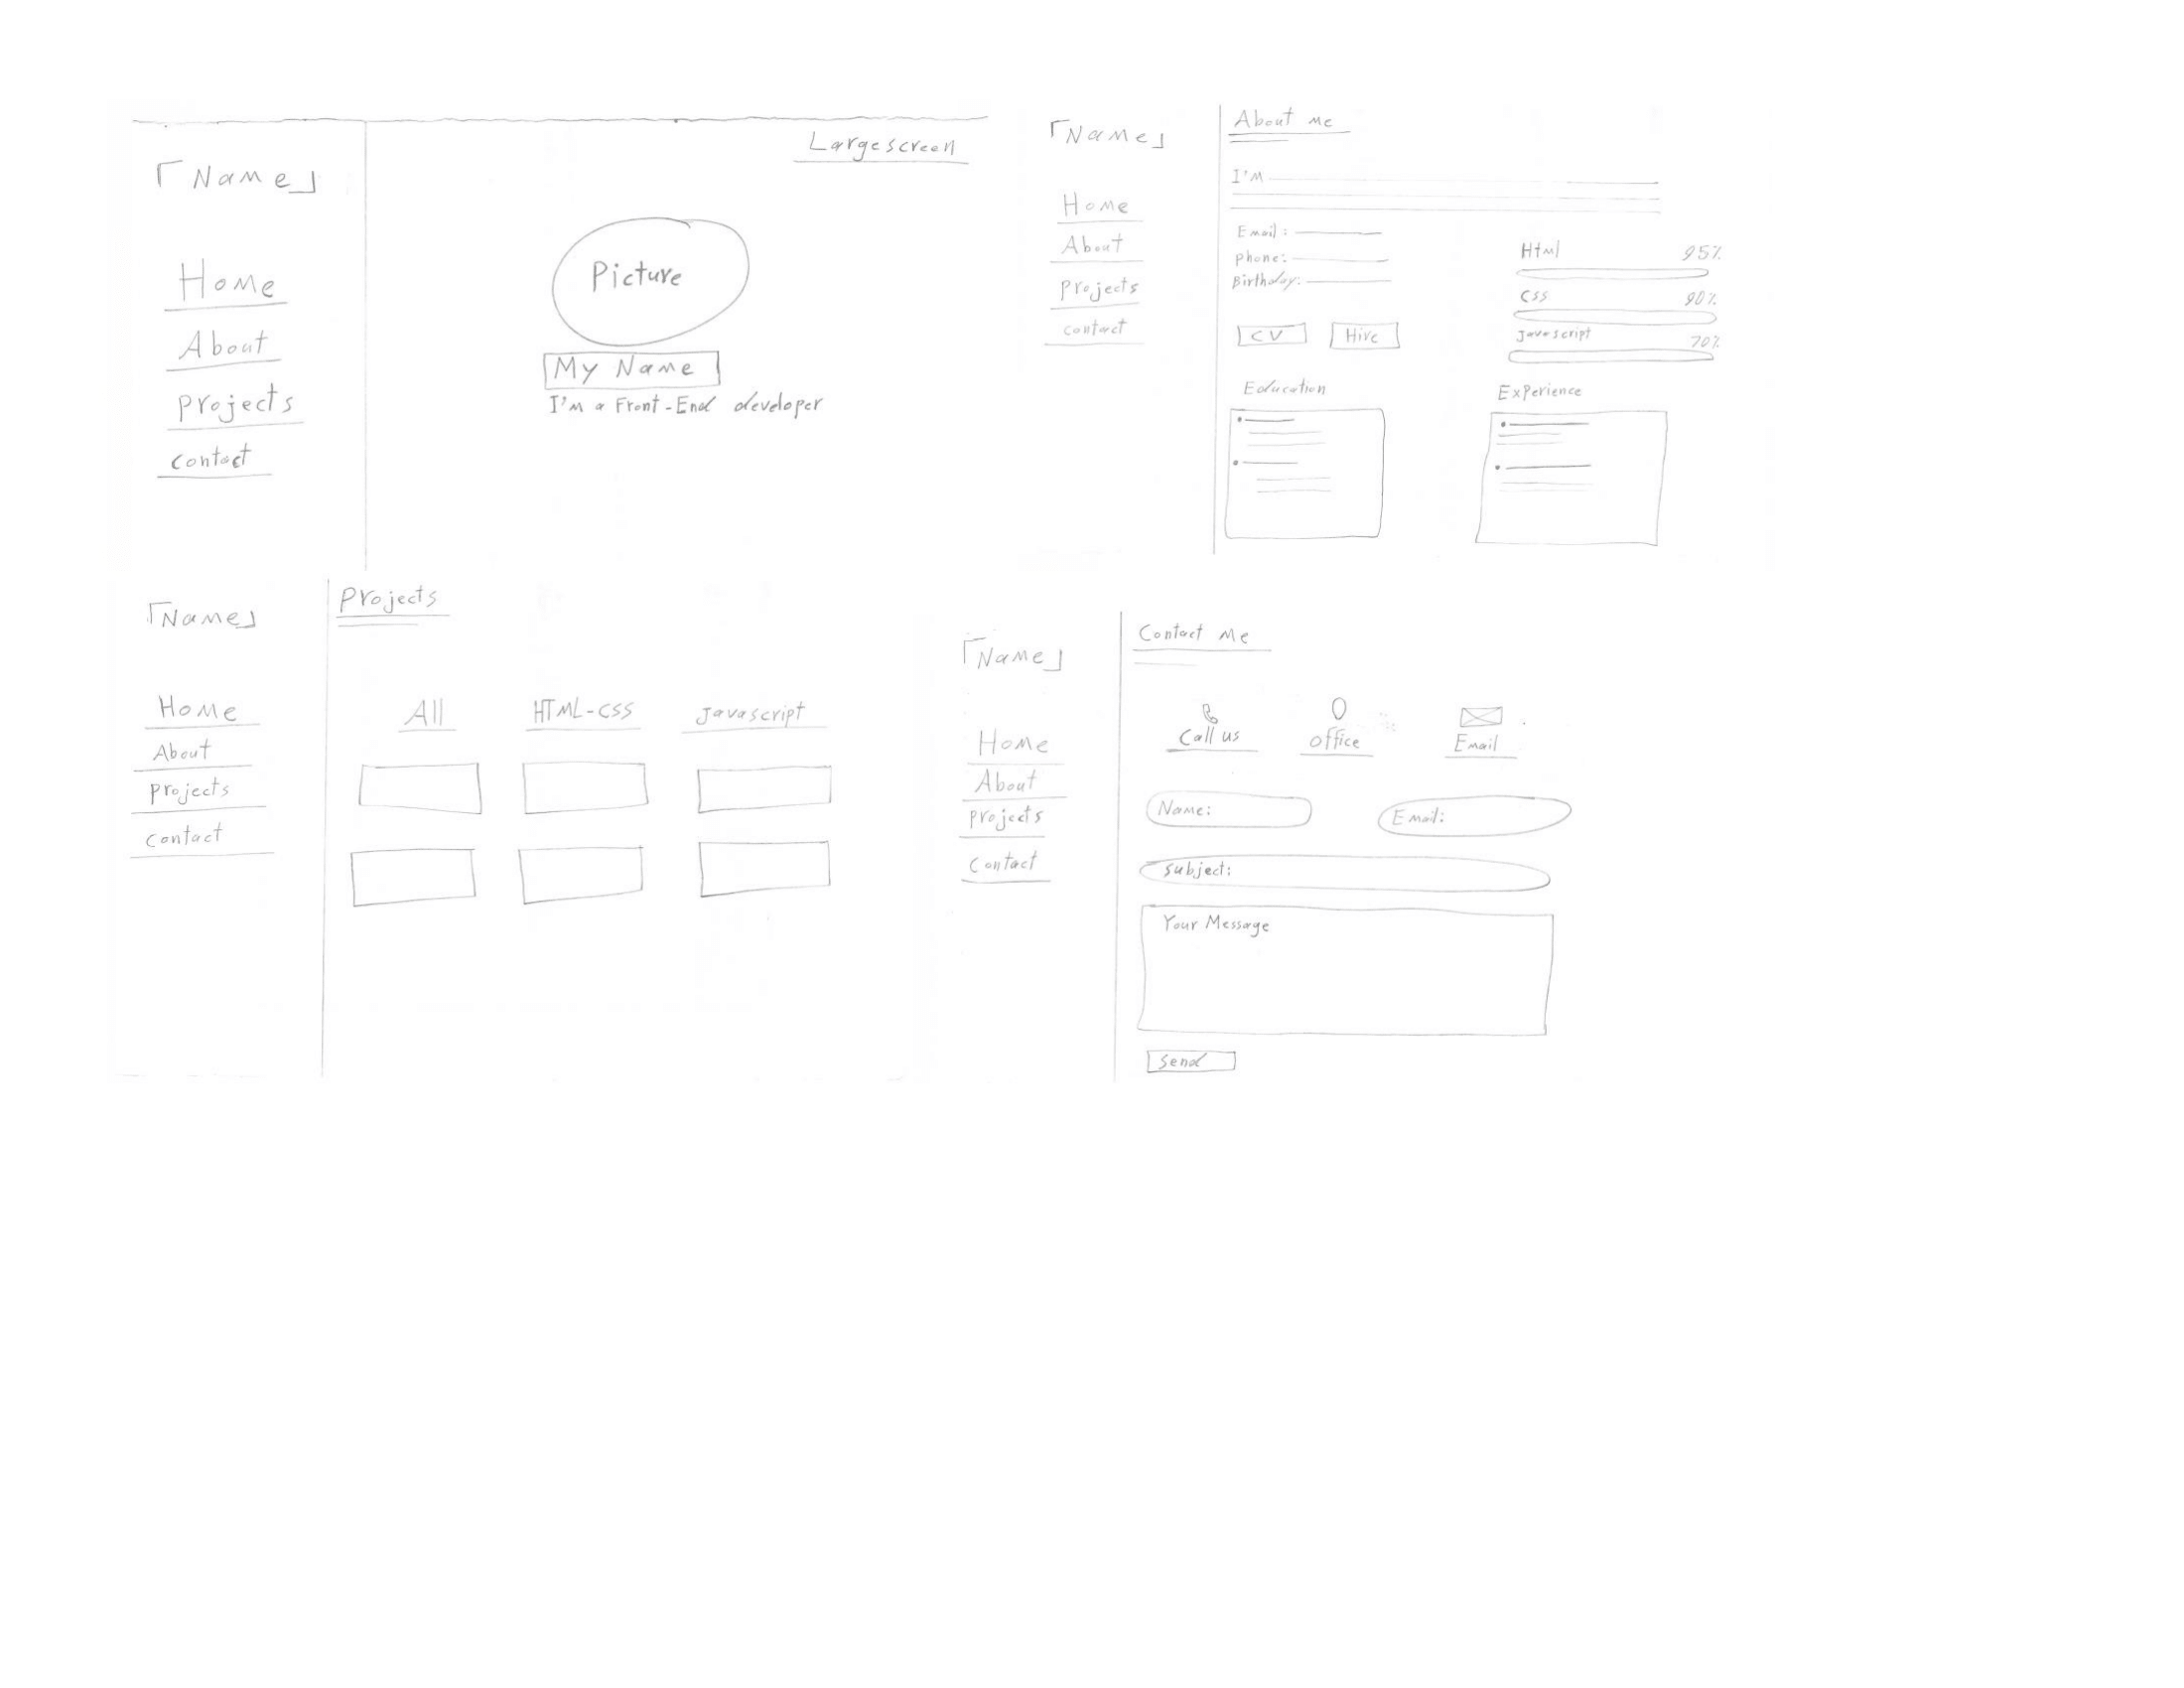 Large screen
「Name」
Home
About
Projects
Contact
Picture
My Name
I'm a Front-End developer
「Name」
Home
About
Projects
Contact
About me
I'm
Email:
Phone:
Birthday:
CV
Hire
Html 95%
Css 90%
Javascript 70%
Education
Experience
「Name」
Home
About
Projects
Contact
Projects
All
HTML-CSS
Javascript
「Name」
Home
About
Projects
Contact
Contact Me
Call us
Office
Email
Name:
Email:
Subject:
Your Message
Send